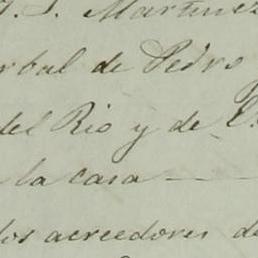 J. Martinez
rbal de Pedro
del Rio y de
la casa
los acreedores de